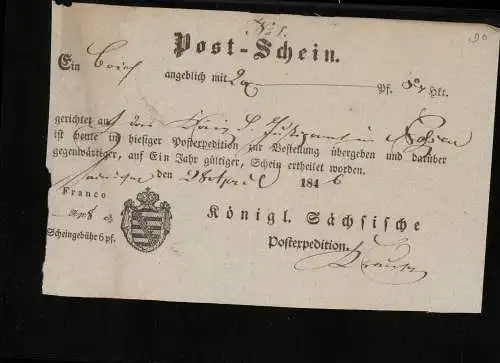 No 1.
Post-Schein.
Ein Brief
angeblich mit Pf. Lth.
gerichtet an das Justizamt in
ist heute in hiesiger Postexpedition zur Bestellung übergeben und darüber
gegenwärtiger, auf Ein Jahr gültiger, Schein ertheilet worden.
den 28 April 1846
Franco
Königl. Sächsische
Scheingebühr 6 pf.
Postexpedition.